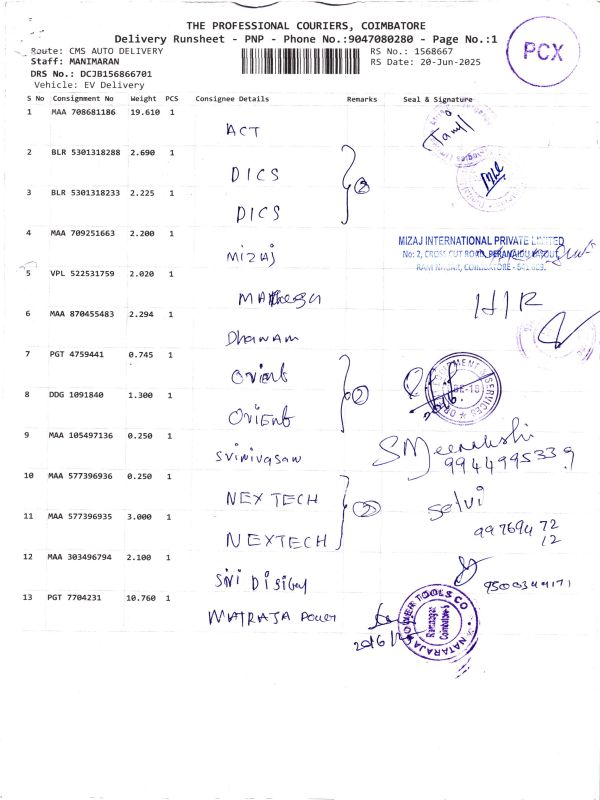 THE PROFESSIONAL COURIERS, COIMBATORE
Delivery Runsheet - PNP - Phone No.:9047080280 - Page No.:1
PCX
Route: CMS AUTO DELIVERY
RS No.: 1568667
Staff: MANIMARAN
RS Date: 20-Jun-2025
DRS No.: DCJB156866701
Vehicle: EV Delivery
S No Consignment No Weight PCS Consignee Details Remarks Seal & Signature
1 MAA 708681186 19.610 1 ACT Tamil
2 BLR 5301318288 2.690 1 DICS 2
3 BLR 5301318233 2.225 1 DICS
4 MAA 709251663 2.200 1 MIZAJ
MIZAJ INTERNATIONAL PRIVATE LIMITED
No: 2, CROSS CUT ROAD, PERANAIDU LAYOUT,
RAM NAGAR, COIMBATORE - 641 009.
5 VPL 522531759 2.020 1
6 MAA 870455483 2.294 1 Dhanam
7 PGT 4759441 0.745 1 Orient 2
8 DDG 1091840 1.300 1 Orient
9 MAA 105497136 0.250 1 Srinivasan SMeenakshi
9944995339
10 MAA 577396936 0.250 1 NEX TECH 2 Selvi
11 MAA 577396935 3.000 1 NEXTECH 997694 72
12
12 MAA 303496794 2.100 1
13 PGT 7704231 10.760 1 Power
NATARAJA POWER TOOLS CO
Ramnagar
Coimbatore-9